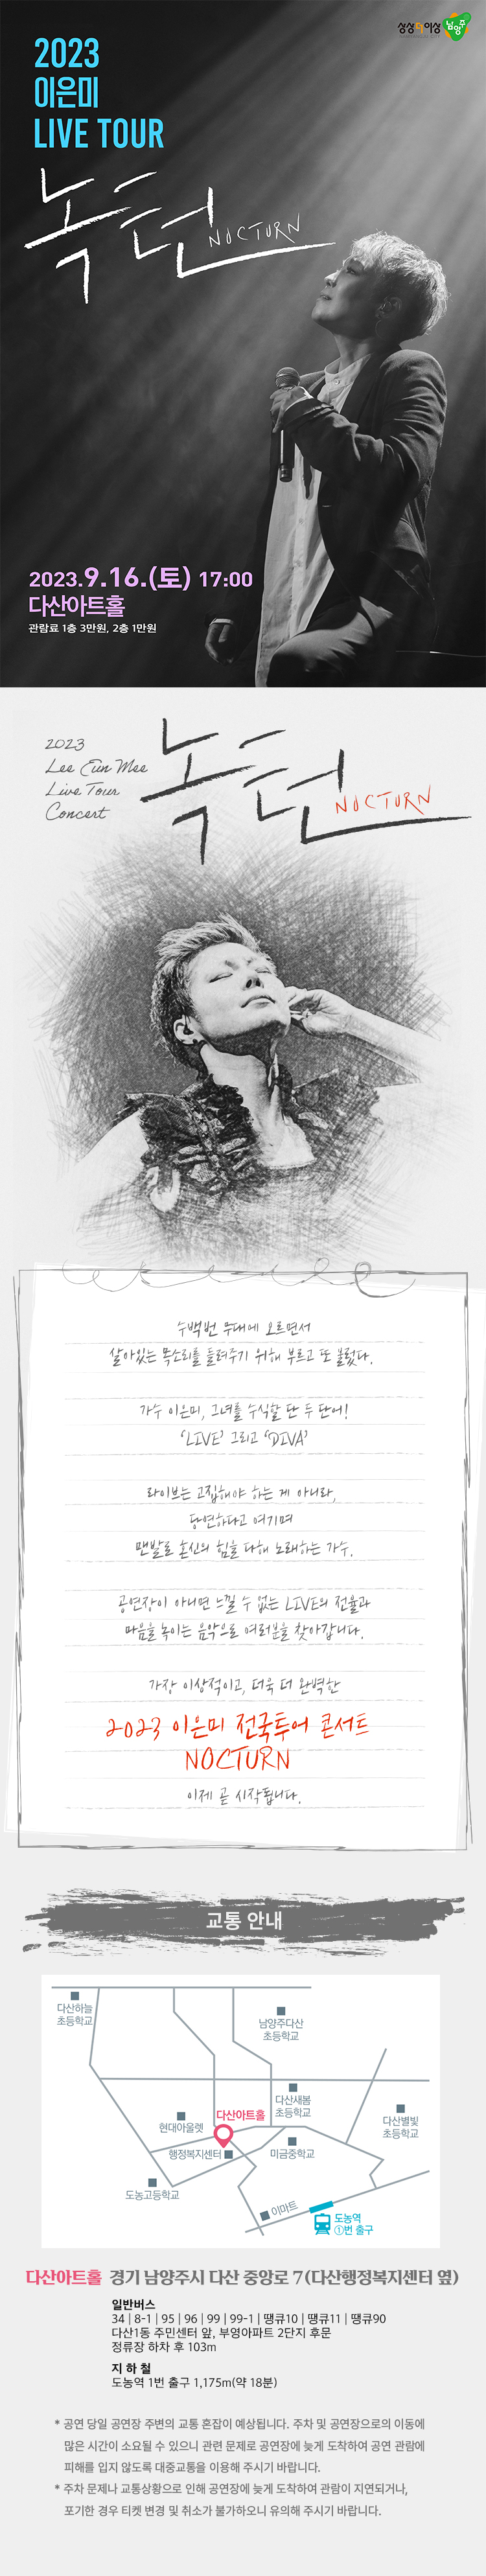 상상더이상 남양주
2023
이은미
LIVE TOUR
녹턴 NOCTURN
2023.9.16.(토) 17:00
다산아트홀
관람료 1층 3만원, 2층 1만원
2023
Lee Eun Mee
Live Tour
Concert
녹턴 NOCTURN
수백번 무대에 오르면서
살아있는 목소리를 들려주기 위해 부르고 또 불렀다.
가수 이은미, 그녀를 수식할 단 두 단어!
'LIVE' 그리고 'DIVA'
라이브는 고집해야 하는 게 아니라,
당연하다고 여기며
맨발로 혼신의 힘을 다해 노래하는 가수.
공연장이 아니면 느낄 수 없는 LIVE의 전율과
마음을 녹이는 음악으로 여러분을 찾아갑니다.
가장 이상적이고, 더욱 더 완벽한
2023 이은미 전국투어 콘서트
NOCTURN
이제 곧 시작됩니다.
교통 안내
다산하늘
초등학교
남양주다산
초등학교
다산새봄
초등학교
다산별빛
초등학교
현대아울렛
다산아트홀
행정복지센터
미금중학교
도농고등학교
이마트
도농역
①번 출구
다산아트홀 경기 남양주시 다산 중앙로 7(다산행정복지센터 옆)
일반버스
34 | 8-1 | 95 | 96 | 99 | 99-1 | 땡큐10 | 땡큐11 | 땡큐90
다산1동 주민센터 앞, 부영아파트 2단지 후문
정류장 하차 후 103m
지 하 철
도농역 1번 출구 1,175m(약 18분)
* 공연 당일 공연장 주변의 교통 혼잡이 예상됩니다. 주차 및 공연장으로의 이동에
많은 시간이 소요될 수 있으니 관련 문제로 공연장에 늦게 도착하여 공연 관람에
피해를 입지 않도록 대중교통을 이용해 주시기 바랍니다.
* 주차 문제나 교통상황으로 인해 공연장에 늦게 도착하여 관람이 지연되거나,
포기한 경우 티켓 변경 및 취소가 불가하오니 유의해 주시기 바랍니다.